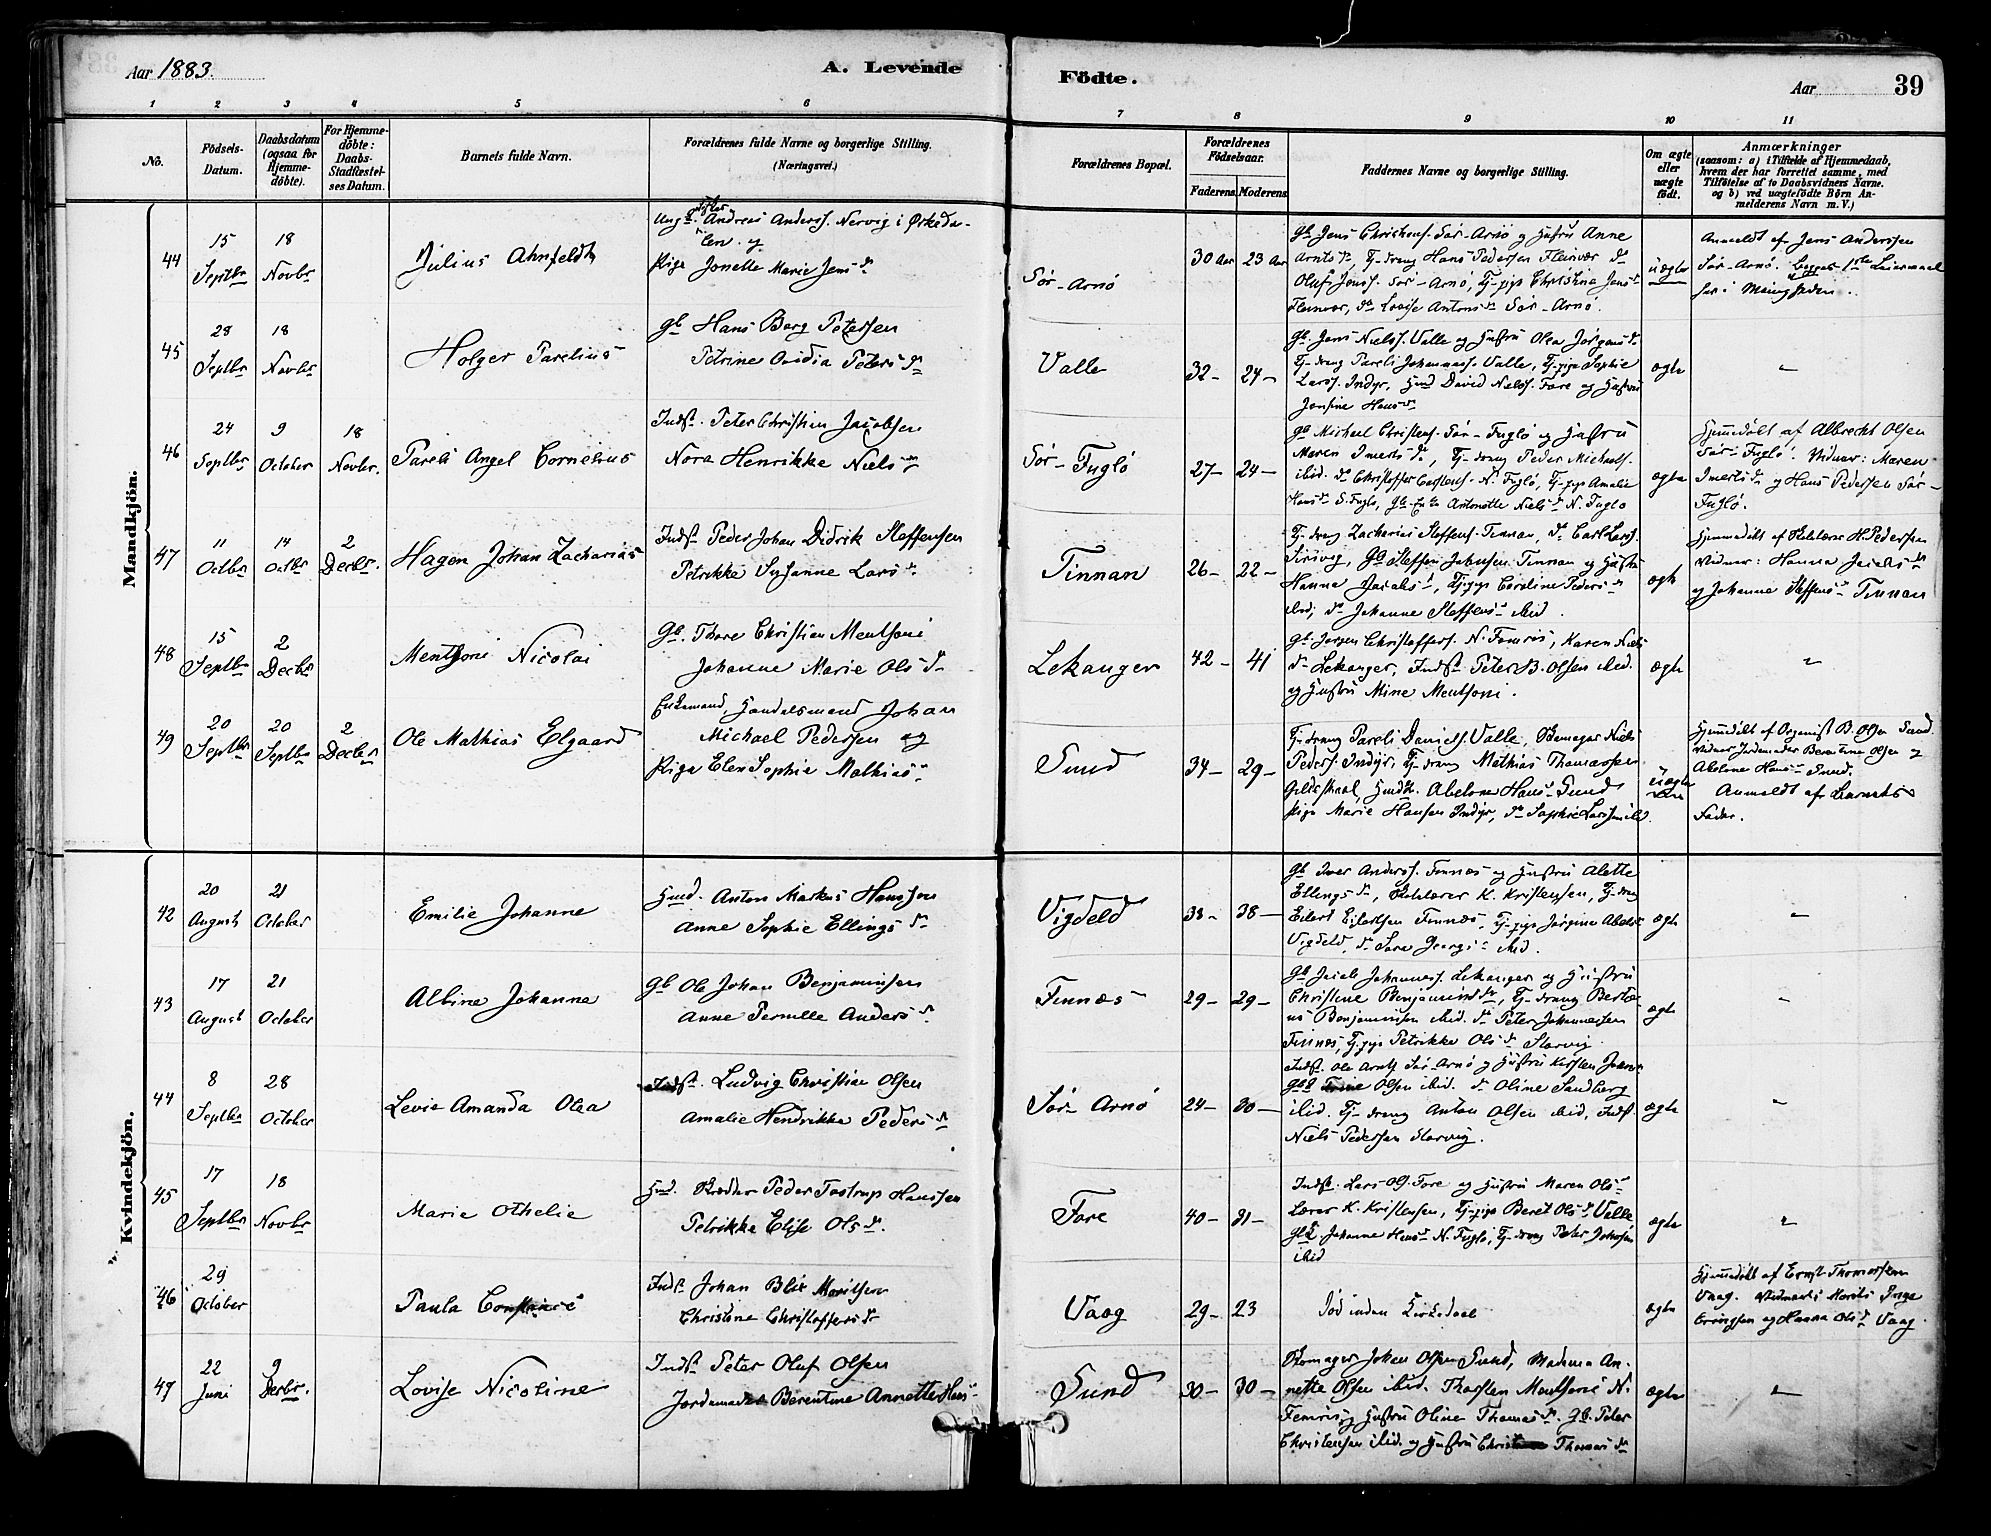 Aar 1883.
A. Levende
Födte.
Aar
39
1 2 3 4 5 6 7 8 9 10 11
No.
Födsels-
Datum.
Daabsdatum
(ogsaa for
Hjemme-
döbte).
For Hjemme-
döbte:
Daabs-
Stadfæstel-
ses Datum.
Barnets fulde Navn.
Forældrenes fulde Navne og borgerlige Stilling.
(Næringsvei.)
Forældrenes Bopæl.
Forældrenes
Födselsaar.
Faderens.
Moderens.
Faddernes Navne og borgerlige Stilling.
Om ægte
eller
uægte
födt.
Anmærkninger
(saasom: a) i Tilfælde af Hjemmedaab,
hvem der har forrettet samme, med
Tilföielse af to Daabsvidners Navne.
og b) ved uægtefödte Börn An-
melderens Navn m. V.)
Mandkjön.
44
15 Septbr
18 Novbr
Julius Ahnfeldt
Andreas Anderss. Nervig i Ørkeda-
len og
Pige Jonette Marie Jensdr
Sør-Arnø
30 Aar
23 Aar
Gb Jens Christens. Sør-Arnø og Hustru Anne
Arntsdr, Tj-dreng Hans Pedersen Fleinvær dr
Oluf Jenss. Sør-Arnø, Tj-pige Christina Jensdr
Fleinvær, do Lovise Antonsdr Sør-Arnø.
uægte
Anmeldt af Jens Anderssen
Sør-Arnø. Begges 1ste Leiermaal
her i Menigheden.
45
28 Septbr
18 Novbr
Holger Parelius
Gb Hans Borg Petersen
Petrine Ovidia Petersdr
Valle
32-
24-
Gb Jens Nielss. Valle og Hustru Olea Jörgensdr
Tj-dreng Pareli Johanness. Valle, Tj-pige Sophie
Larss. Indyr, Hmd David Nielss. Fore og Hustru
Jensine Hansdr
ægte
"
46
24 Septbr
9 October
18 Novbr.
Pareli Angel Cornelius
Indst. Peter Christian Jacobsen
Nora Henrikke Nielsdr
Sør-Fuglø
27-
24-
Gb Michael Christens. Sør-Fuglø og Hustru
Maren Imertsdr, Tj-dreng Peder Michaels.
ibid. do Christoffer Carstens. N. Fuglø, Tj-pige Amalie
Hansdr S. Fuglø, Gb-Enke Antonette Nielsdr N. Fuglø
ægte
Hjemmedöbt af Albrecht Olsen
Sør-Fuglø. Vidner: Maren
Imertsdr og Hans Pedersen Sør-
Fuglø.
47
11 Octbr
14 Octbr
2 Decbr.
Hagen Johan Zacharias
Indst Peder Johan Didrik Steffensen
Petrikke Susanne Larsdr
Finnan
26-
22-
Tj-dreng Zacharias Steffens. Finnan, do Carl Larss.
Gb Steffen Johnsen Finnan og Hustru
Hanna Jacobsdr, Tj-pige Caroline Pedersdr
ibid, do Johanne Steffensdr ibid.
ægte
Hjemmedöbt af Skolelærer H. Pedersen
Vidner: Hanna Jacobsdr
og Johanne Steffensdr Finnan
48
15 Septbr
2 Decbr
Mentzoni Nicolai
Gb. Thore Christian Mentsoni
Johanne Marie Olsdr
Lekanger
42-
41
Gb. Jørgen Christoffers. N. Femris, Karen Niels
dr Lekanger, Indst Peter B. Olsen ibid.
og Hustru Mine Mentsoni.
ægte
"
49
20 Septbr
20 Septbr
2 Decbr
Ole Mathias Elgaard
Enkemand, Handelsmand Johan
Michael Pedersen og
Pige Elen Sophie Mathiasdr
Sund
34-
29-
Tj-dreng Pareli Daniels. Valle, Skomager Niels
Peders. Indyr, Tj-dreng Mathias Thomassen
Gildeskaal, Abelone Hansdr Sund
Pige Marie Hansen Indyr, do Sophie Larssen ibid.
uægte
Hjemmedöbt af Organist B. Olsen Sund
Vidner Jordemoder Berentine Olsen og
Abelone Hansdr Sund.
Anmeldt af Barnets
Fader.
Kvindekjön.
42
20 August
21 October
Emilie Johanne
Hmd. Anton Markus Hanssen
Anne Sophie Ellingsdr
Vigdeld
38-
38-
Gb Iver Anderss. Finnæs og Hustru Alette
Ellingsdr, Skolelærer K. Kristensen, Tj-dreng
Eilert Eilertsen Finnæs, Tj-pige Jørgine Abelsdr
Vigdeld, do Sara Georgsdr ibid.
ægte
"
43
17 August
21 October
Albine Johanna
Gb Ole Johan Benjaminsen
Anne Pernille Andersdr
Finnæs
29-
29-
Gb Jacob Johanness. Lekanger og Hustru
Christene Benjaminsdr, Tj-dreng Bertæ-
us Benjaminsen ibid. do Peter Johannessen
Finnæs, Tj-pige Petrikke Olsdr Storvig
ægte
"
44
8 Septbr
28 October
Levie Amanda Olea
Indst. Ludvig Christian Olsen
Amalie Hendrikke Pedersdr
Sør-Arnø
24-
30-
Indst. Ole Arnts Sør-Arnø og Hustru Kirsten
Olsen ibid. do Oline Sandberg
ibid. Tj-dreng Anton Olsen ibid, Indst.
Niels Pedersen Storvig.
ægte
"
45
17 Septbr
18 Novbr
Marie Othelie
Hmd. Skræder Peder Tostrup Hanssen
Petrikke Elise Olsdr
Fore
40-
31-
Indst. Lars Ols. Fore og Hustru Maren Olsdr
Lærer K. Kristensen, Tj-pige Beret Olsdr Valle
Johanne Hansdr N. Fuglø, Tj-dreng Peter Johnsen
ibid
ægte
"
46
29 October
Paula Constance
Indst. Johan Blix Moritsen
Christine Christoffersdr
Vaag
29-
23
Död inden Kirkedaab
ægte
Hjemmedöbt af Ernst Thomassen
Vaag. Vidner: Morits Inge-
brigtsen og Hanna Olsdr Vaag.
47
22 Juni
9 Decbr.
Lovise Nicoline
Indst Peter Oluf Olsen
Jordemoder Berentine Annette Hansdr
Sund
30-
30-
Skomager Johan Olsen Sund, Madama An-
nette Olsen ibid. Thorsten Mentsoni N.
Femris og Hustru Oline Thomasdr. Gb. Peter
Christensen ibid. og Hustru Thomasdr
ægte
"